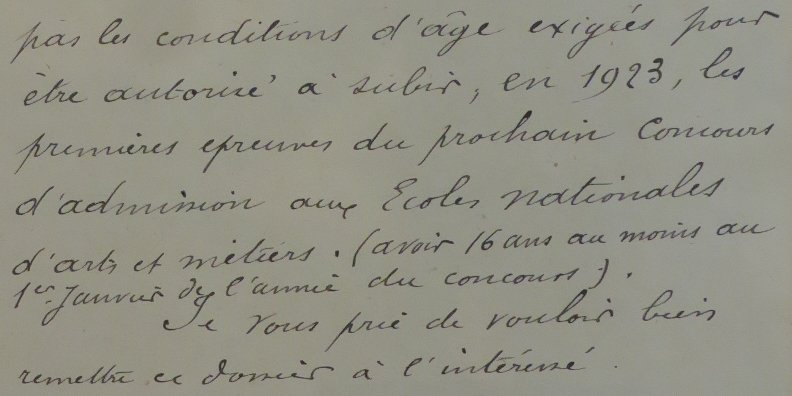 pas les conditions d'âge exigées pour
être autorisé à subir, en 1923, les
premières épreuves du prochain Concours
d'admission aux Ecoles nationales
d'arts et métiers. (avoir 16 ans au moins au
1er Janvier de l'année du concours).
Je vous prie de vouloir bien
remettre ce dossier à l'intéressé.